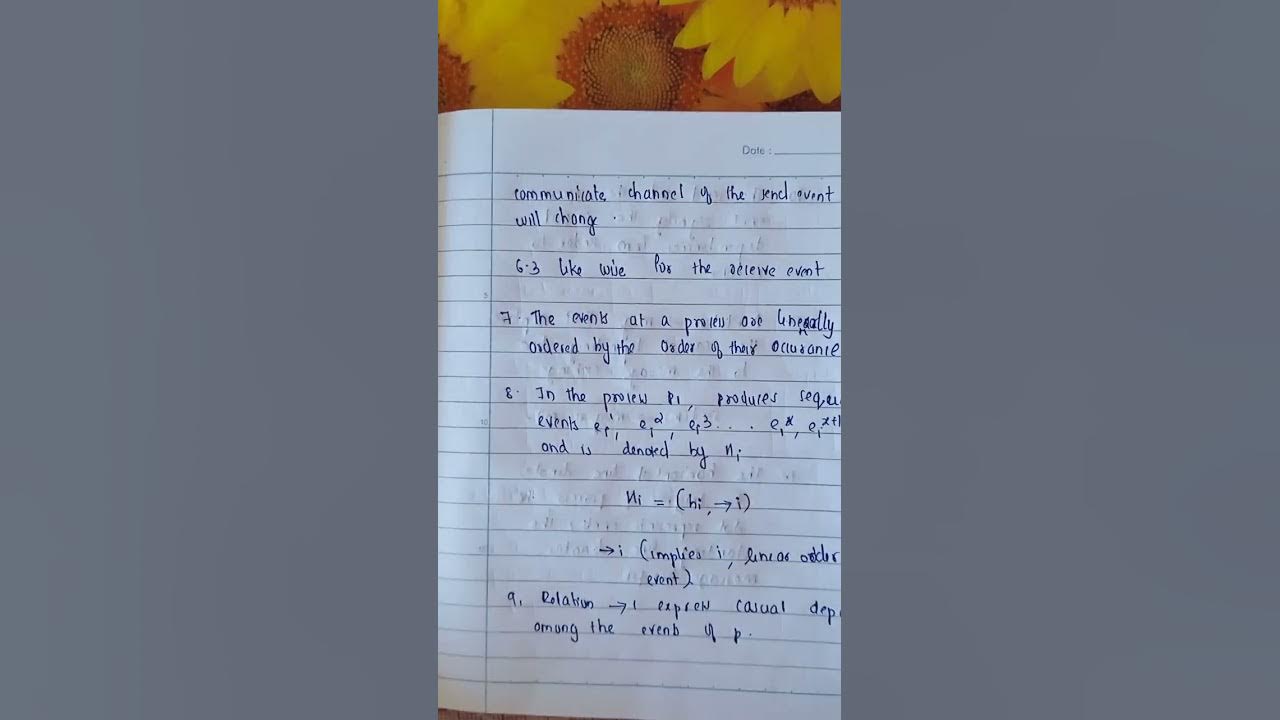 Date :
communicate channel of the send event
will chang .
6.3 like wise for the receive event
7. The events at a process are linearly
ordered by the order of their occurance
8. In the process P1, produces sequ
events ei1, ei2, ei3 . . . eix, eix+1
and is denoted by Hi
Hi = (hi, →i)
→i (implies i, linear order
event)
9. Relation →i express casual dep
among the events of p.
5
10
15